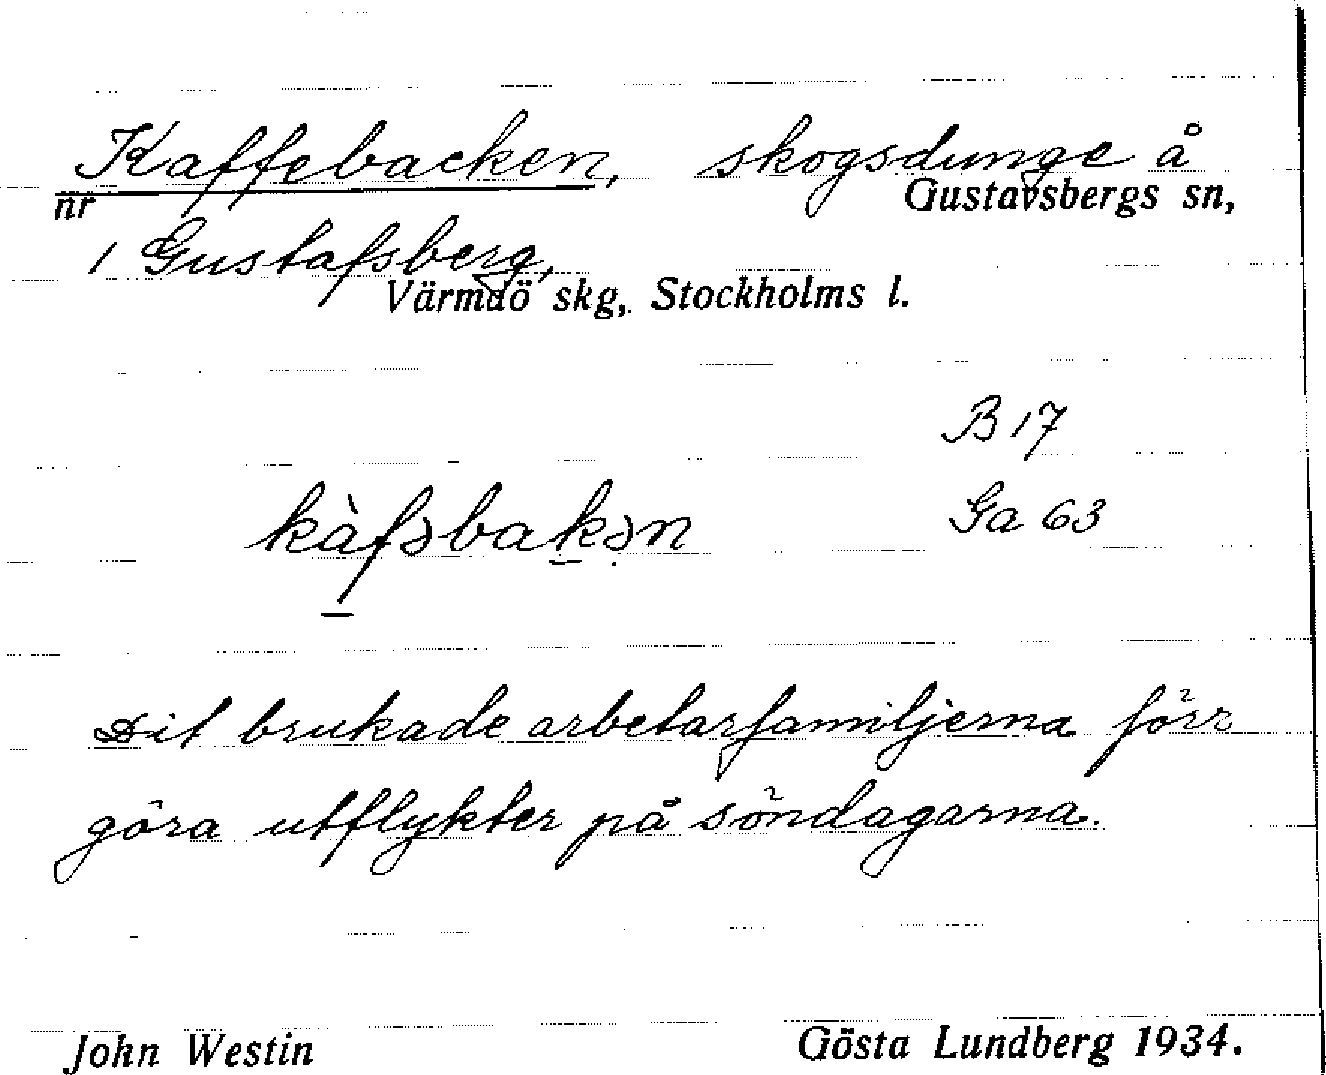 Kaffebacken, skogsdunge å
nr Gustavsbergs sn,
1 Gustafsberg,
Värmdö skg, Stockholms l.
B 17
kàfəbakən
Ga 63
Dit brukade arbetarfamiljerna förr
göra utflykter på söndagarna.
John Westin Gösta Lundberg 1934.